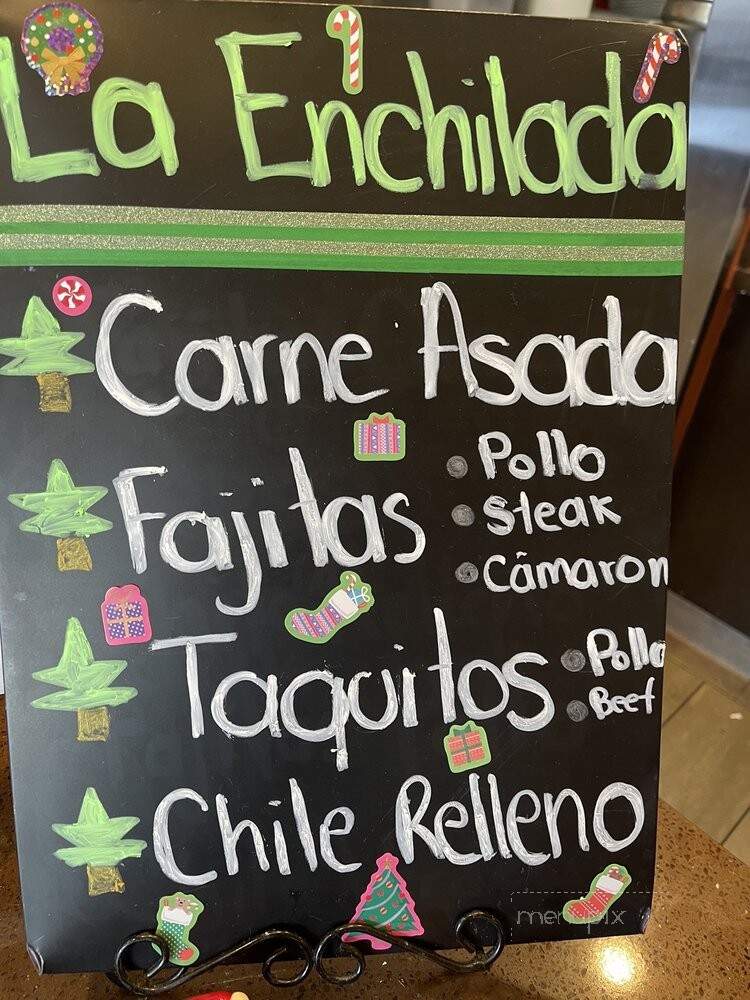 La Enchilada
Carne Asada
Fajitas
Pollo
Steak
Cámaron
Taquitos
Pollo
Beef
Chile Relleno
menupix